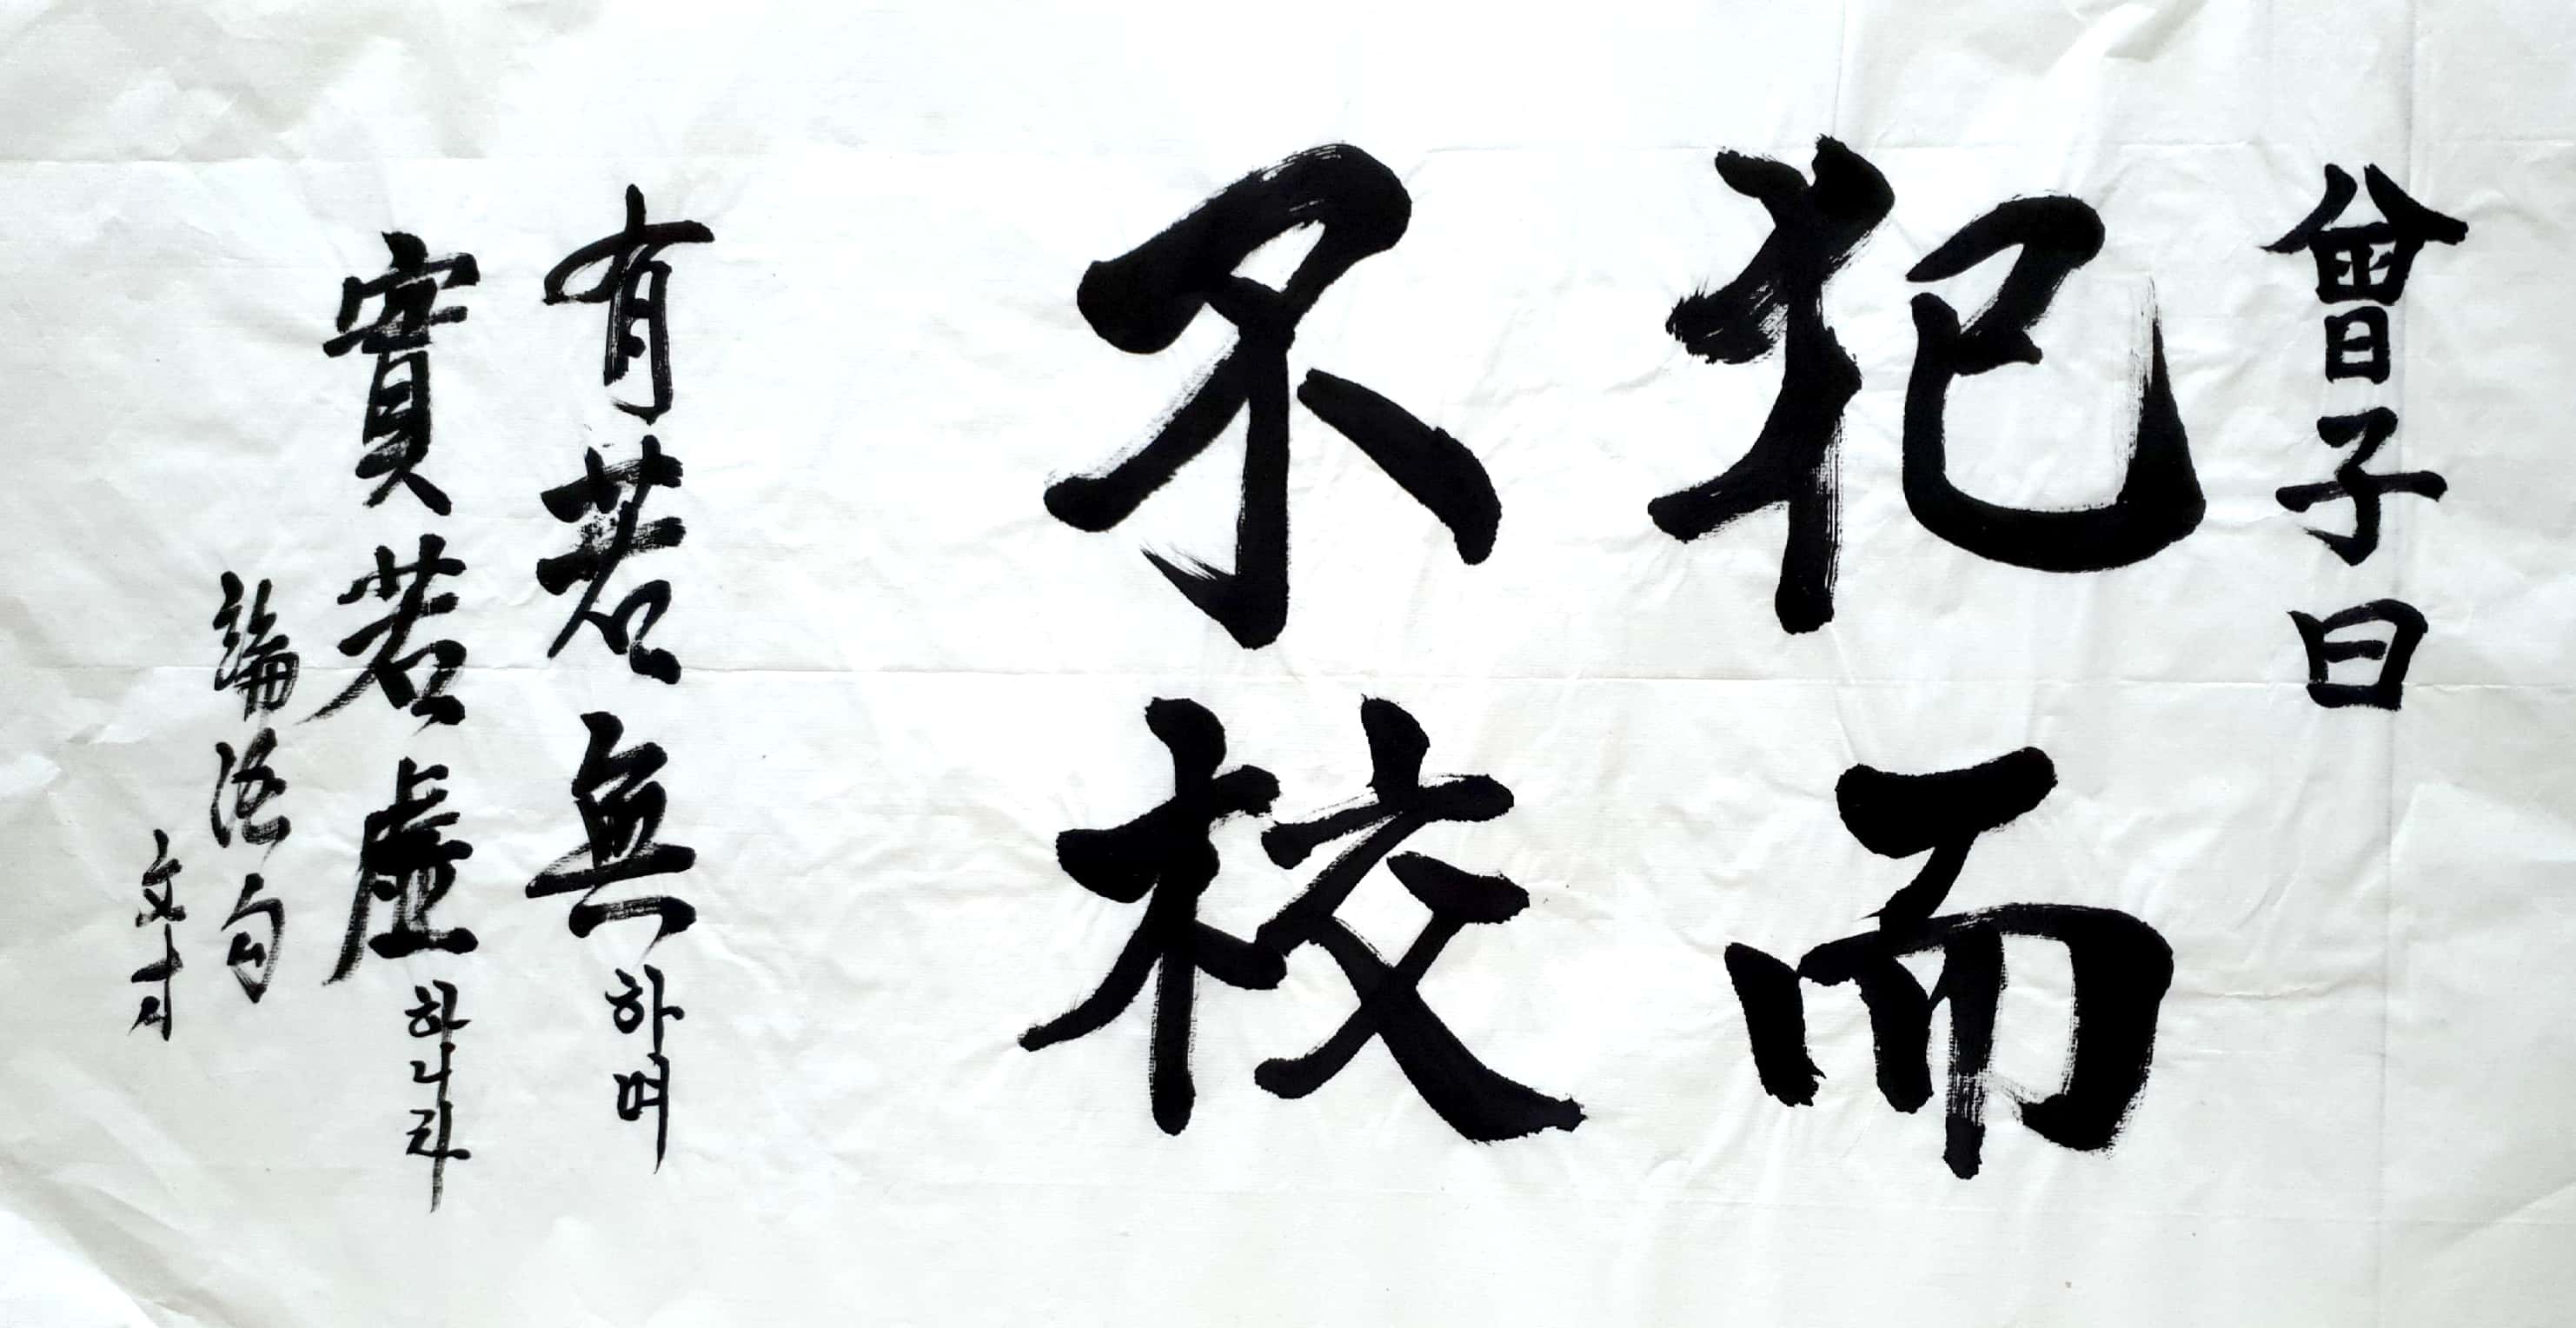 曾子曰
犯而
不校
有若無하며
實若虛하니라
論語句